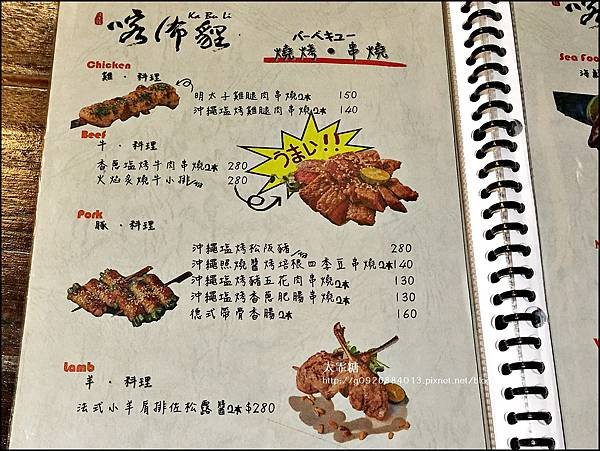 Ka Bu Li
喀佈貍
バーベキュー
燒烤•串燒
Chicken
雞•料理
明太子雞腿肉串燒2本 150
沖繩塩烤雞腿肉串燒2本 140
Beef
牛•料理
香蔥塩烤牛肉串燒2本 280
火焰炙燒牛小排 280
うまい!!
Pork
豚•料理
沖繩塩烤松阪豬 280
沖繩照燒醬烤培根四季豆串燒2本 140
沖繩塩烤豬五花肉串燒2本 130
沖繩塩烤香蔥肥腸串燒2本 130
德式帶骨香腸2本 160
Lamb
羊•料理
法式小羊肩排佐松露醬2本 $280
Sea Foo
海
大乖糖
http://q0926884013.pixnet.net/blo